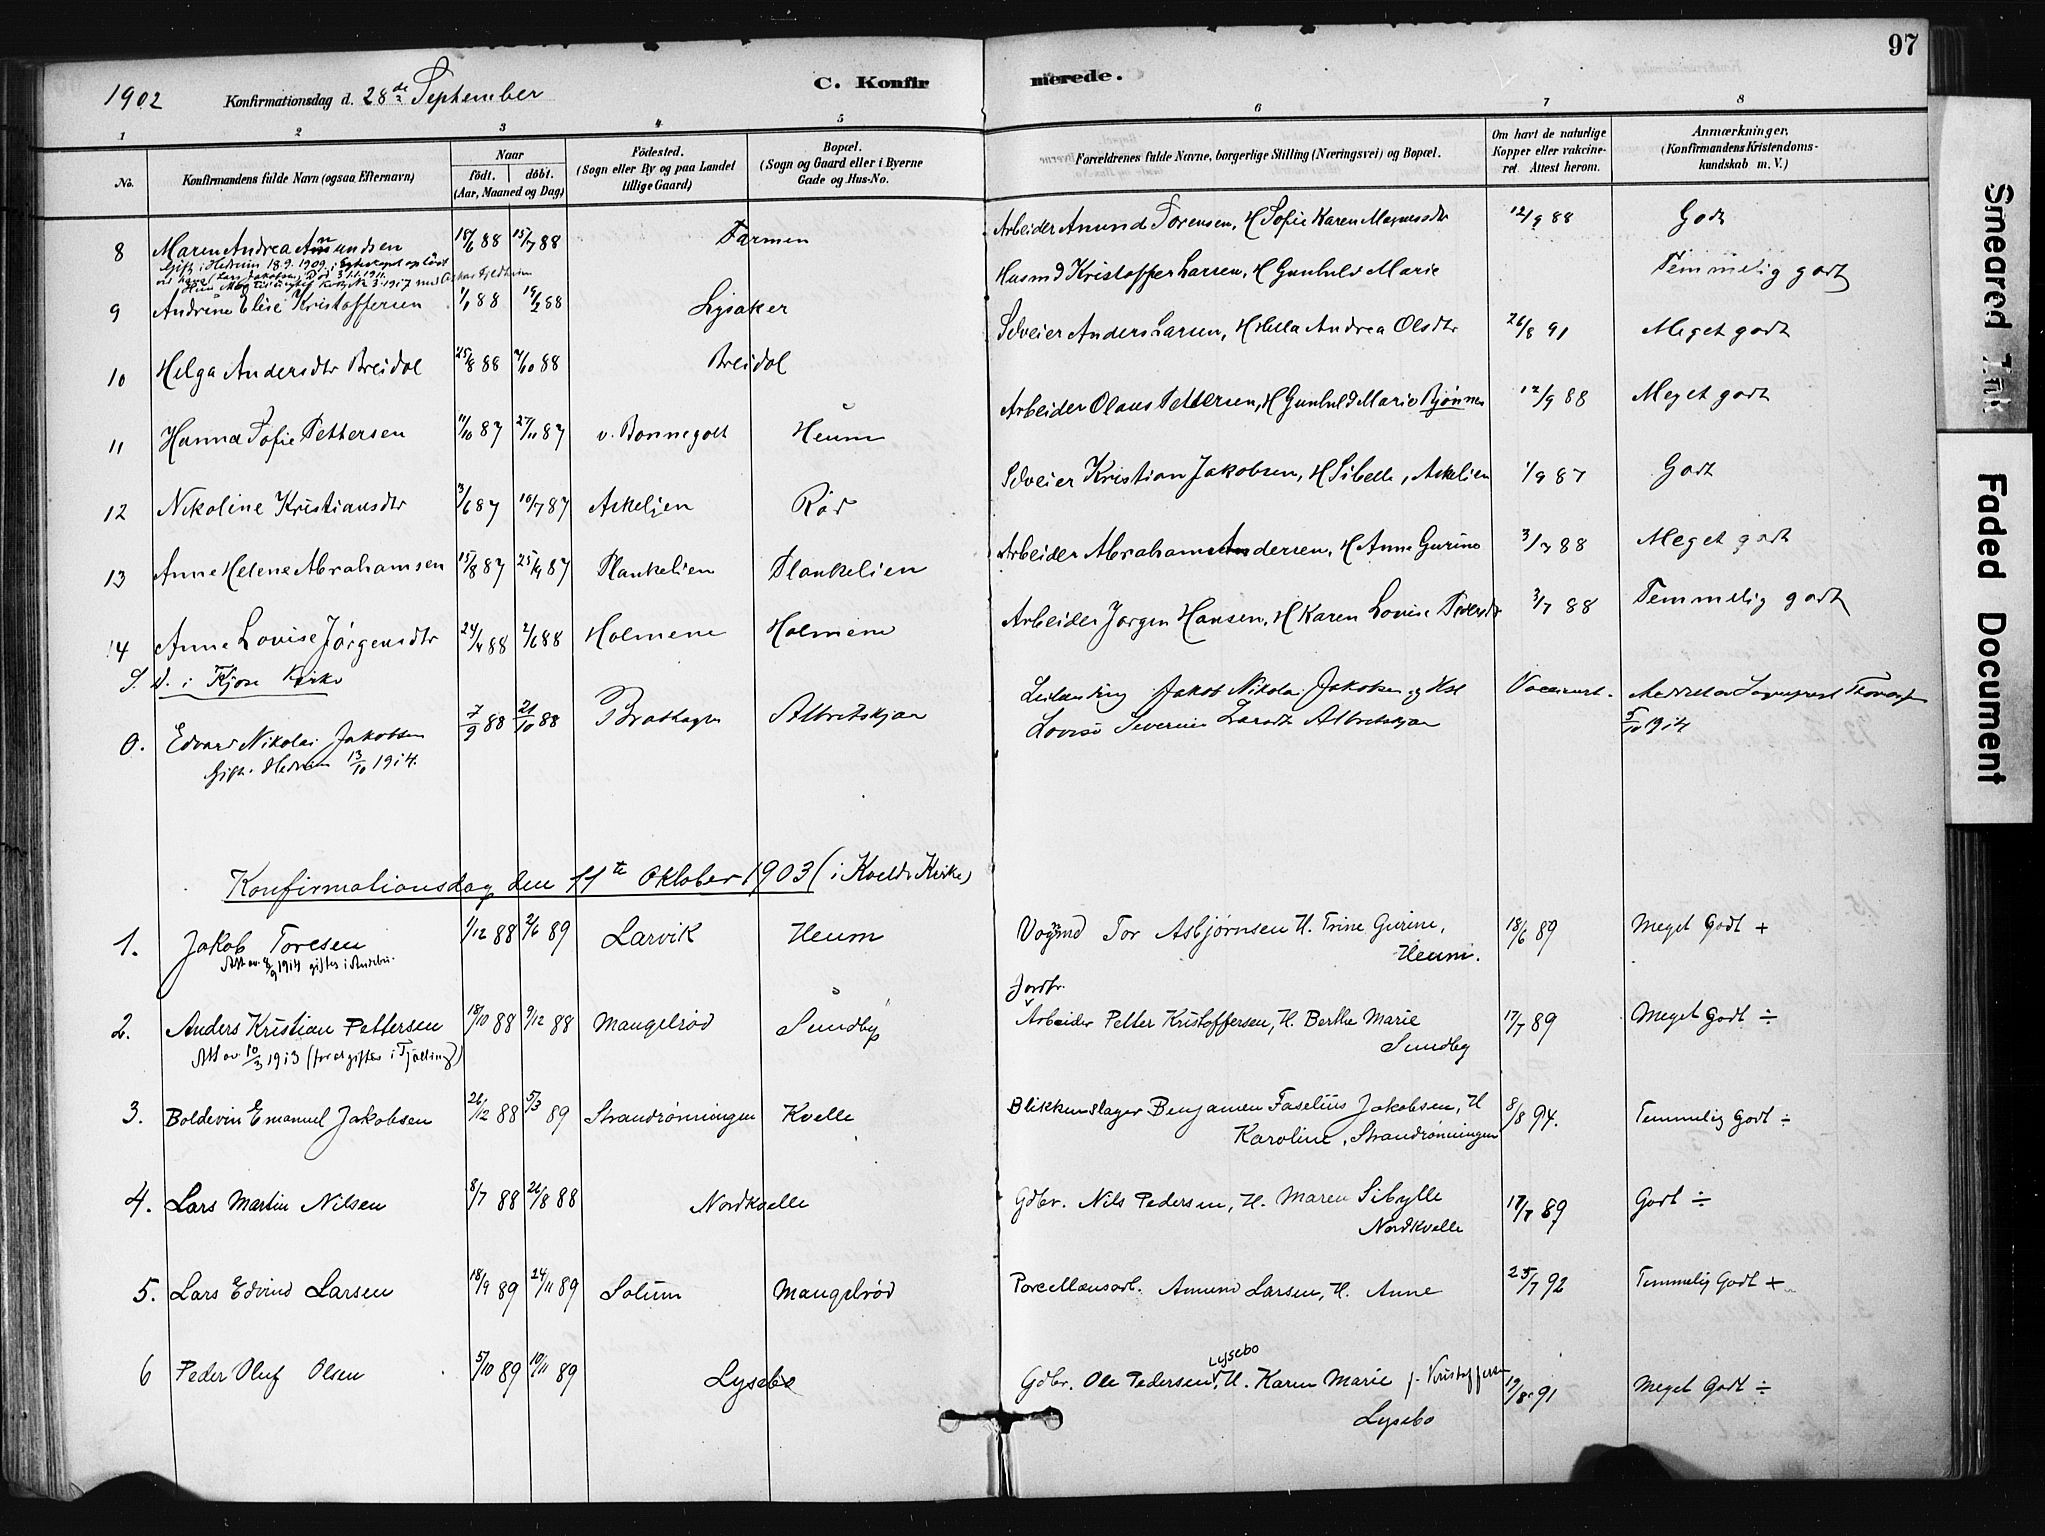 97
1902 Konfirmationsdag d. 28de September C. Konfirmerede.
1 2 3 4 5 6 7 8
No. Konfirmandens fulde Navn (ogsaa Efternavn) Naar født. døbt. (Aar, Maaned og Dag) Födested. (Sogn eller By og paa Landet tillige Gaard) Bopæl. (Sogn og Gaard eller i Byerne Gade og Hus-No. Forældrenes fulde Navne, borgerlige Stilling (Næringsvei) og Bopæl. Om havt de naturlige Kopper eller vakcineret. Attest herom. Anmærkninger. (Konfirmandens Kristendomskundskab m. V.)
8 Maren Andrea Amundsen 18/6 88 15/7 88 Farmen Arbeider Amund Torensen, H Sofie Karen Magnusdtr 12/9 88 Godt
Gift i Hedrum 18.9.1909
9 Andrine Elise Kristoffersen 1/1 88 19/2 88 Lysaker Husmd Kristoffer Larsen, H Gunhild Marie Temmelig godt
10 Helga Andersdtr Breidal 25/8 88 7/10 88 Breidal Selveier Anders Larsen, H Hella Andrea Olsdtr 26/8 91 Meget godt
11 Hanna Sofie Pettersen 11/10 87 27/11 87 v. Bonnegolt Heum Arbeider Olaus Pettersen, H Gunhild Marie Bjønnes 12/9 88 Meget godt
12 Nikoline Kristiansdtr 3/6 87 10/7 87 Askelien Rød Selveier Kristian Jakobsen, H Sibelle, Askelien 1/9 87 Godt
13 Anne Helene Abrahamsen 15/8 87 25/9 87 Plankelien Plankelien Arbeider Abraham Andersen, H Anne Gurine 3/7 88 Meget godt
14 Anne Lovise Jørgensdtr 24/4 88 2/6 88 Holmene Holmene Arbeider Jørgen Hansen, H Karen Lovise Pedersdtr 3/7 88 Temmelig godt
S. D. i Kjose Kirke
0. Edvard Nikolai Jakobsen 7/9 88 21/10 88 Brathagen Albretskjær Jakob Nikolai Jakobsen og Hst Vaccinert.
Lovise Severine Larsdtr Albretskjær 5/10 1914
Gift. Hedrum 13/10 1914.
Konfirmationsdag den 11te Oktober 1903 (i Kvelde Kirke)
1. Jakob Toresen 1/12 88 2/6 89 Larvik Heum Tor Asbjørnsen H. Trine Gurine, Heum. 18/6 89 Meget Godt +
2. Anders Kristian Pettersen 18/10 88 9/12 88 Mangelrød Sundby Jordbr. Arbeider Petter Kristoffersen, H. Berthe Marie Sundby 17/7 89 Meget Godt ÷
Att av 10/3 1913 (for at giftes i Tjølling)
3. Boldevin Emanuel Jakobsen 26/12 88 5/3 89 Strandrønningen Kvelle Blikkenslager Benjamen Faselius Jakobsen, H Karoline, Strandrønningen 8/8 94. Temmelig Godt ÷
4. Lars Martin Nilsen 8/7 88 26/8 88 Nordkvelle Gdbr. Nils Pedersen, H. Maren Sibylle Nordkvelle 17/7 89 Godt ÷
5. Lars Edvind Larsen 18/9 89 24/11 89 Solum Mangelrød Porcellænsarb. Amund Larsen, H. Anne 25/7 92 Temmelig Godt +
6 Peder Oluf Olsen 5/10 89 10/11 89 Lysebo Gdbr. Ole Pedersen Lysebo, H. Karen Marie f. Kristoffersen Lysebo 19/8 91 Meget Godt ÷
Smeared Ink
Faded Document